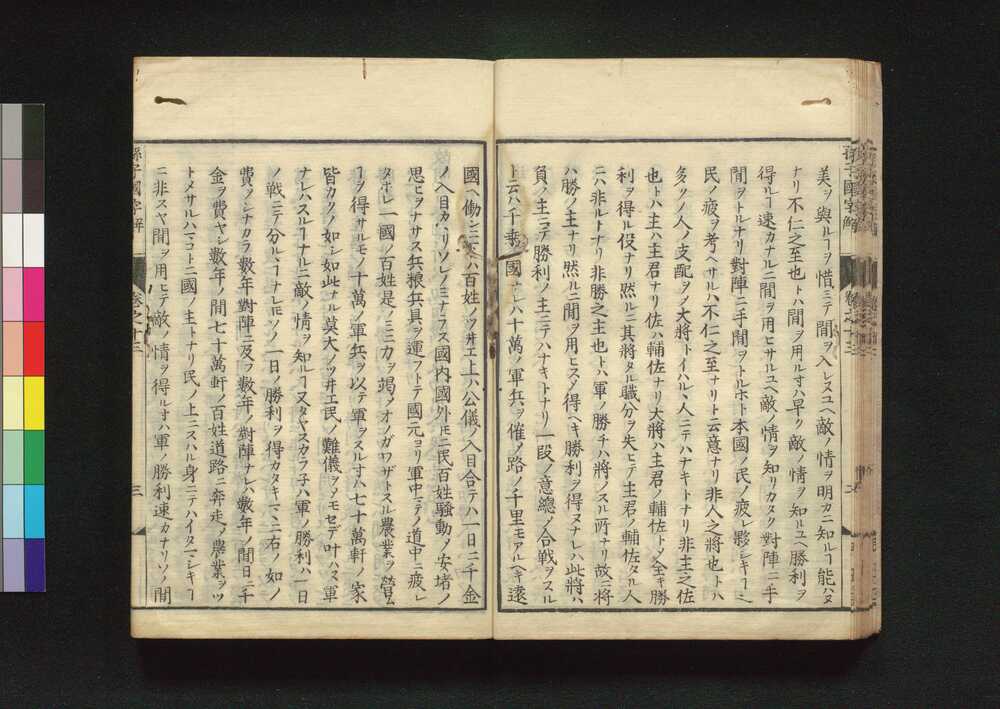 美ヲ與ルヿヲ惜ミテ間ヲ入レスユヘ敵ノ情ヲ明カニ知ルヿ能ハヌ
ナリ不仁之至也トハ間ヲ用ル寸ハ早ク敵ノ情ヲ知ルユヘ勝利ヲ
得ルヿ速カナルニ間ヲ用ヒサルユヘ敵ノ情ヲ知リカタク對陣ニ手
間ヲトルナリ對陣ニ手間ヲトルホト本國ノ民ノ疲レ夥シキヿニ
民ノ疲ヲ考ヘサルハ不仁之至ナリト云意ナリ非人之將也トハ
多クノ人ノ支配ヲメ大將トイハルヽ人ニテハナキトナリ非主之佐
也トハ主ハ主君ナリ佐ハ輔佐ナリ大將ハ主君ノ輔佐トメ全キ勝
利ヲ得ル役ナリ然ルニ其將タル職分ヲ失ヒテ主君ノ輔佐タル人
ニハ非ルトナリ非勝之主也トハ軍ノ勝チハ將ノスル所ナリ故ニ將
ハ勝ノ主ナリ然ルニ間ヲ用ヒスメ得ヘキ勝利ヲ得ヌナレハ此將ハ
負ノ主ニテ勝利ノ主ニテハナキトナリ一段ノ意總メ合戰ヲスル
ト云ハ千乗ノ國ナレハ十萬ノ軍兵ヲ催メ路ノ千里モアルヘキ遠
國ヘ働シニハ百姓ノツ井エ上ハ公儀ノ入目合テハ一日ニ千金
ノ入目カヽリソレノミナラス國内國外モニ民百姓騒動メ安堵ノ
思ヒヲナサス兵粮兵具ヲ運フトテ國元ヨリ軍中ニテノ道中ニ疲レ
タホレ一國ノ百姓是ノミニ力ヲ竭メオノガワザトスル農業ヲ營ム
ヿヲ得サルモノ十萬ノ軍兵ヲ以テ軍ヲスル寸ハ七十萬軒ノ家
皆カクノ如シ如此ナル莫大ノツ井エ民ノ難儀ヲメモセデ叶ハヌ軍
ナレハスルヿナルニ敵ノ情ヲ知ルヿ又タヤスカラ子ハ軍ノ勝利ハ一日
ノ戰ニテ分ルヽヿナレ𪜈ソノ一日ノ勝利ヲ得カタキマヽニ右ノ如ノ
費ヲシナカラ數年對陣ニ及フ數年ノ對陣ナレハ數年ノ間日ニ千
金ヲ費ヤシ數年ノ間七十萬軒ノ百姓道路ニ奔走メ農業ヲツ
トメサルハマコトニ國ノ主トナリ民ノ上ニスハル身ニテハイタマシキヿ
ニ非スヤ間ヲ用ヒテ敵ノ情ヲ得ル寸ハ軍ノ勝利速カナリソノ間
孫子國字解
卷之十三
三